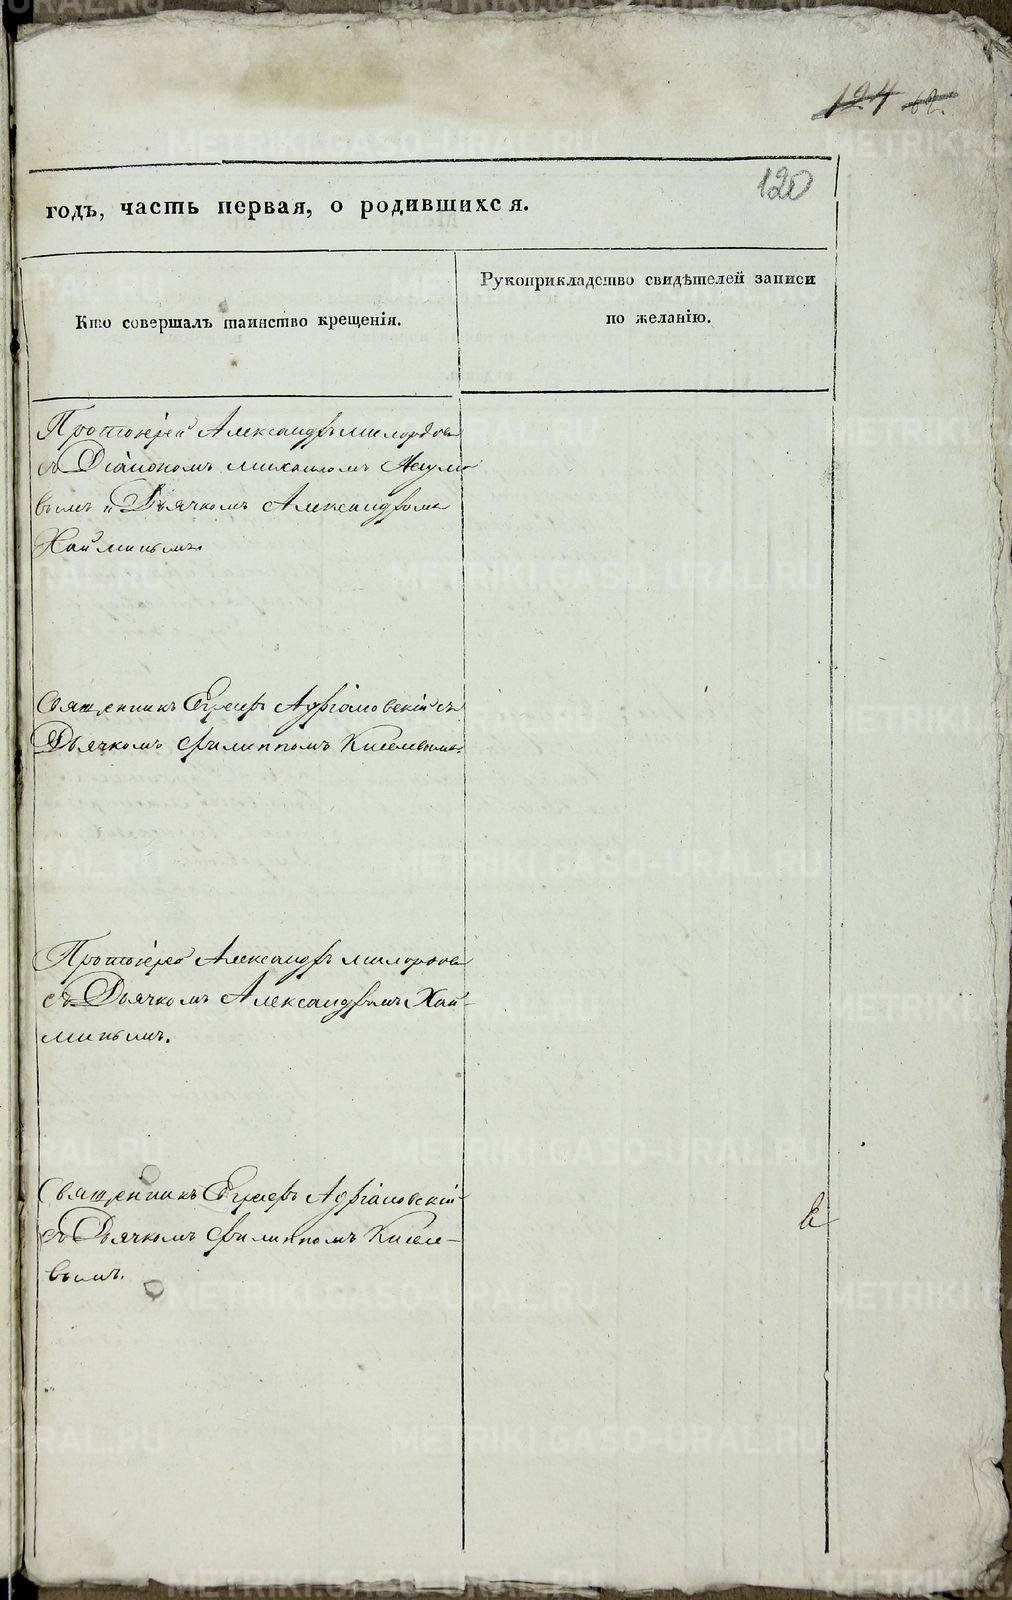 124 62.
120
годъ, часть первая, о родившихся.
Кто совершалъ таинство крещенія.
Рукоприкладство свидѣтелей записи
по желанію.
Протоіерей Александръ Милордовъ
съ Діакономъ Михаиломъ
вымъ и Дьячкомъ Александромъ
Хайминымъ
Священникъ Егоръ Адріановскій съ
Дьячкомъ Филиппомъ Киселевымъ.
Протоіерей Александръ Милордовъ
съ Дьячкомъ Александромъ Хай-
минымъ.
Священникъ Егоръ Адріановскій
съ Дьячкомъ Филиппомъ Кисле-
вымъ.
METRIKI.GASO-URAL.RU